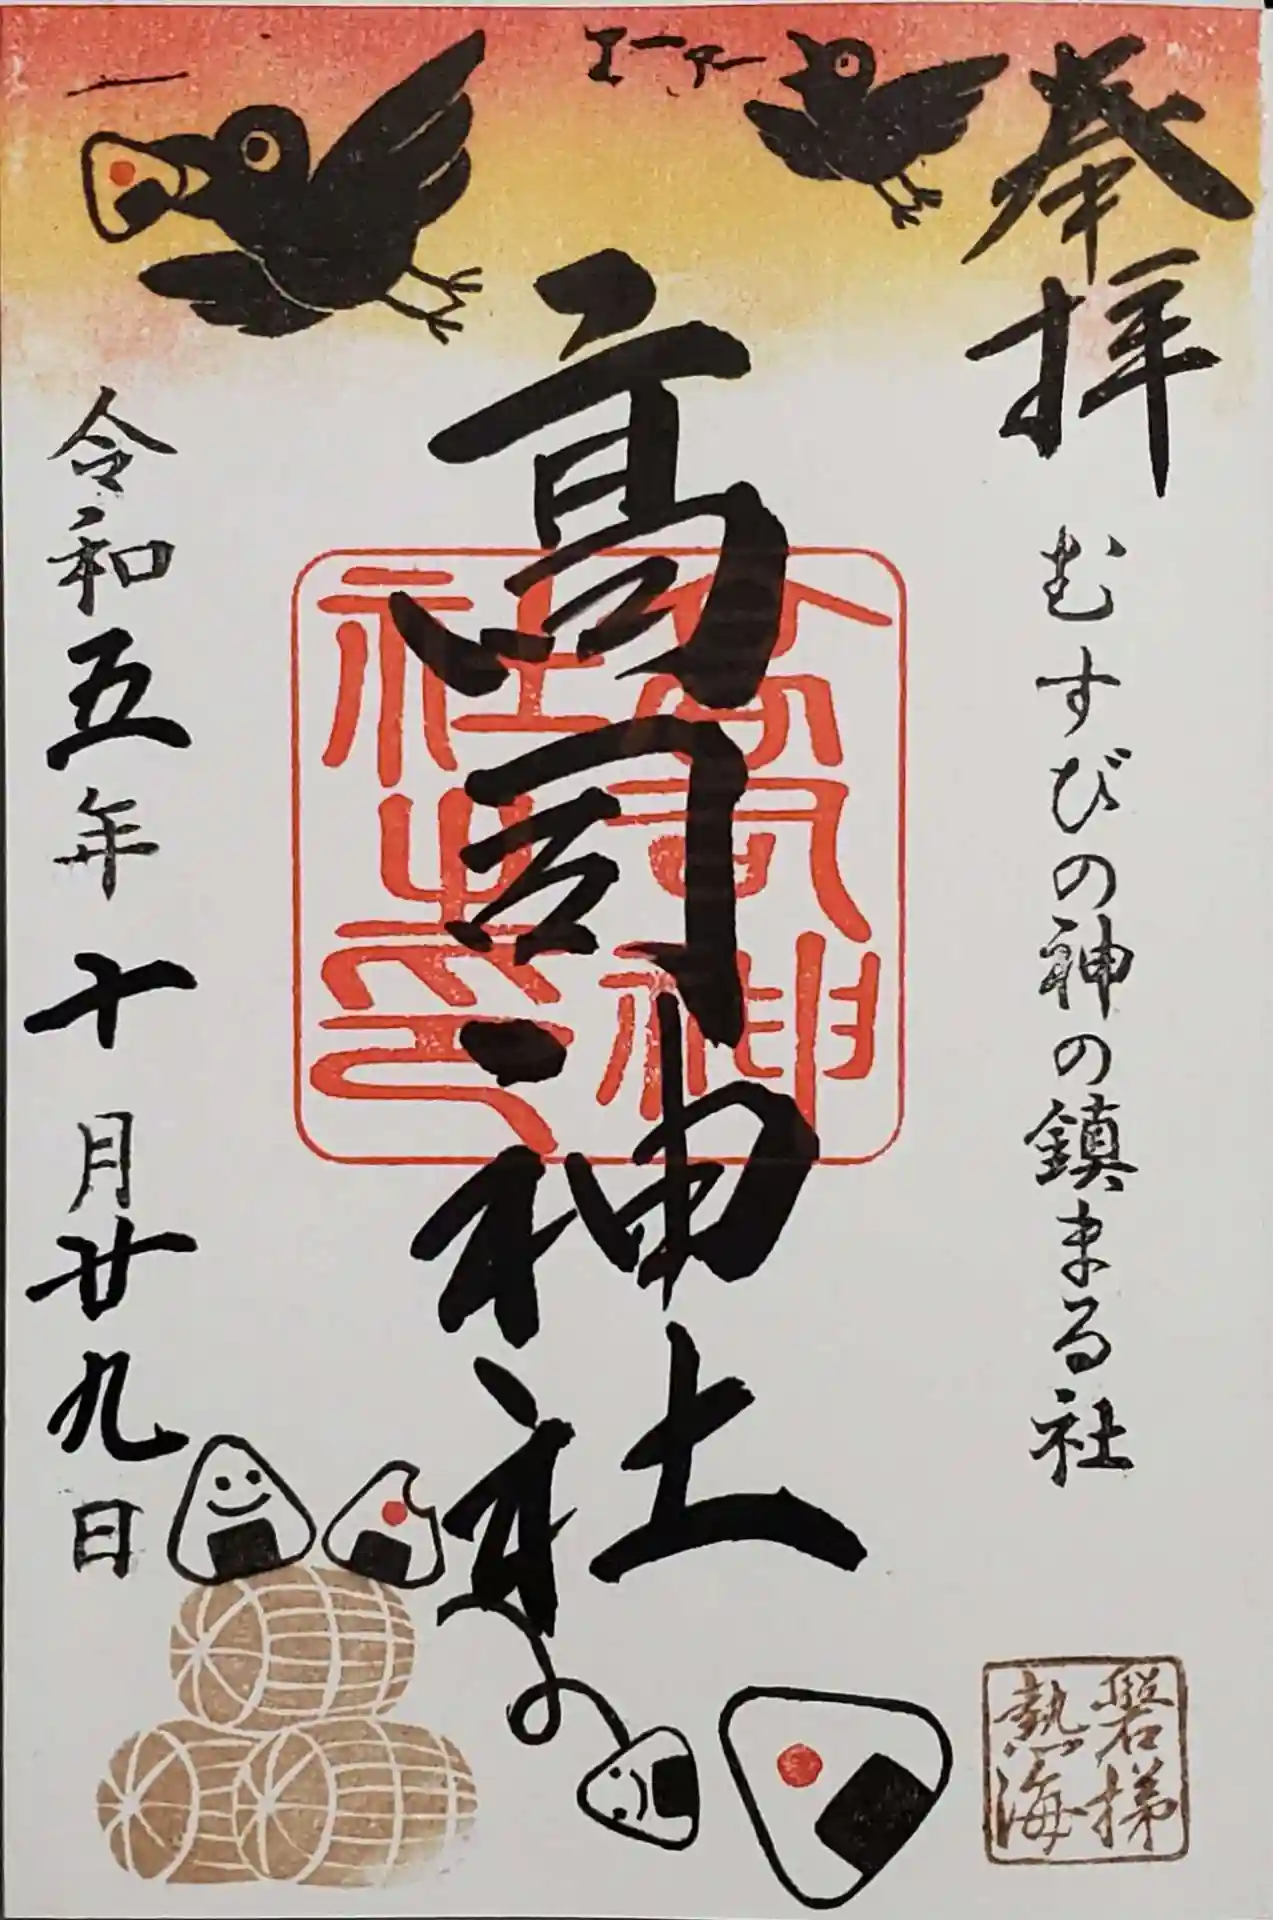 奉拝
むすびの神の鎮まる社
高司神社
高司神
社之印
令和五年十月廿九日
磐梯
熱海